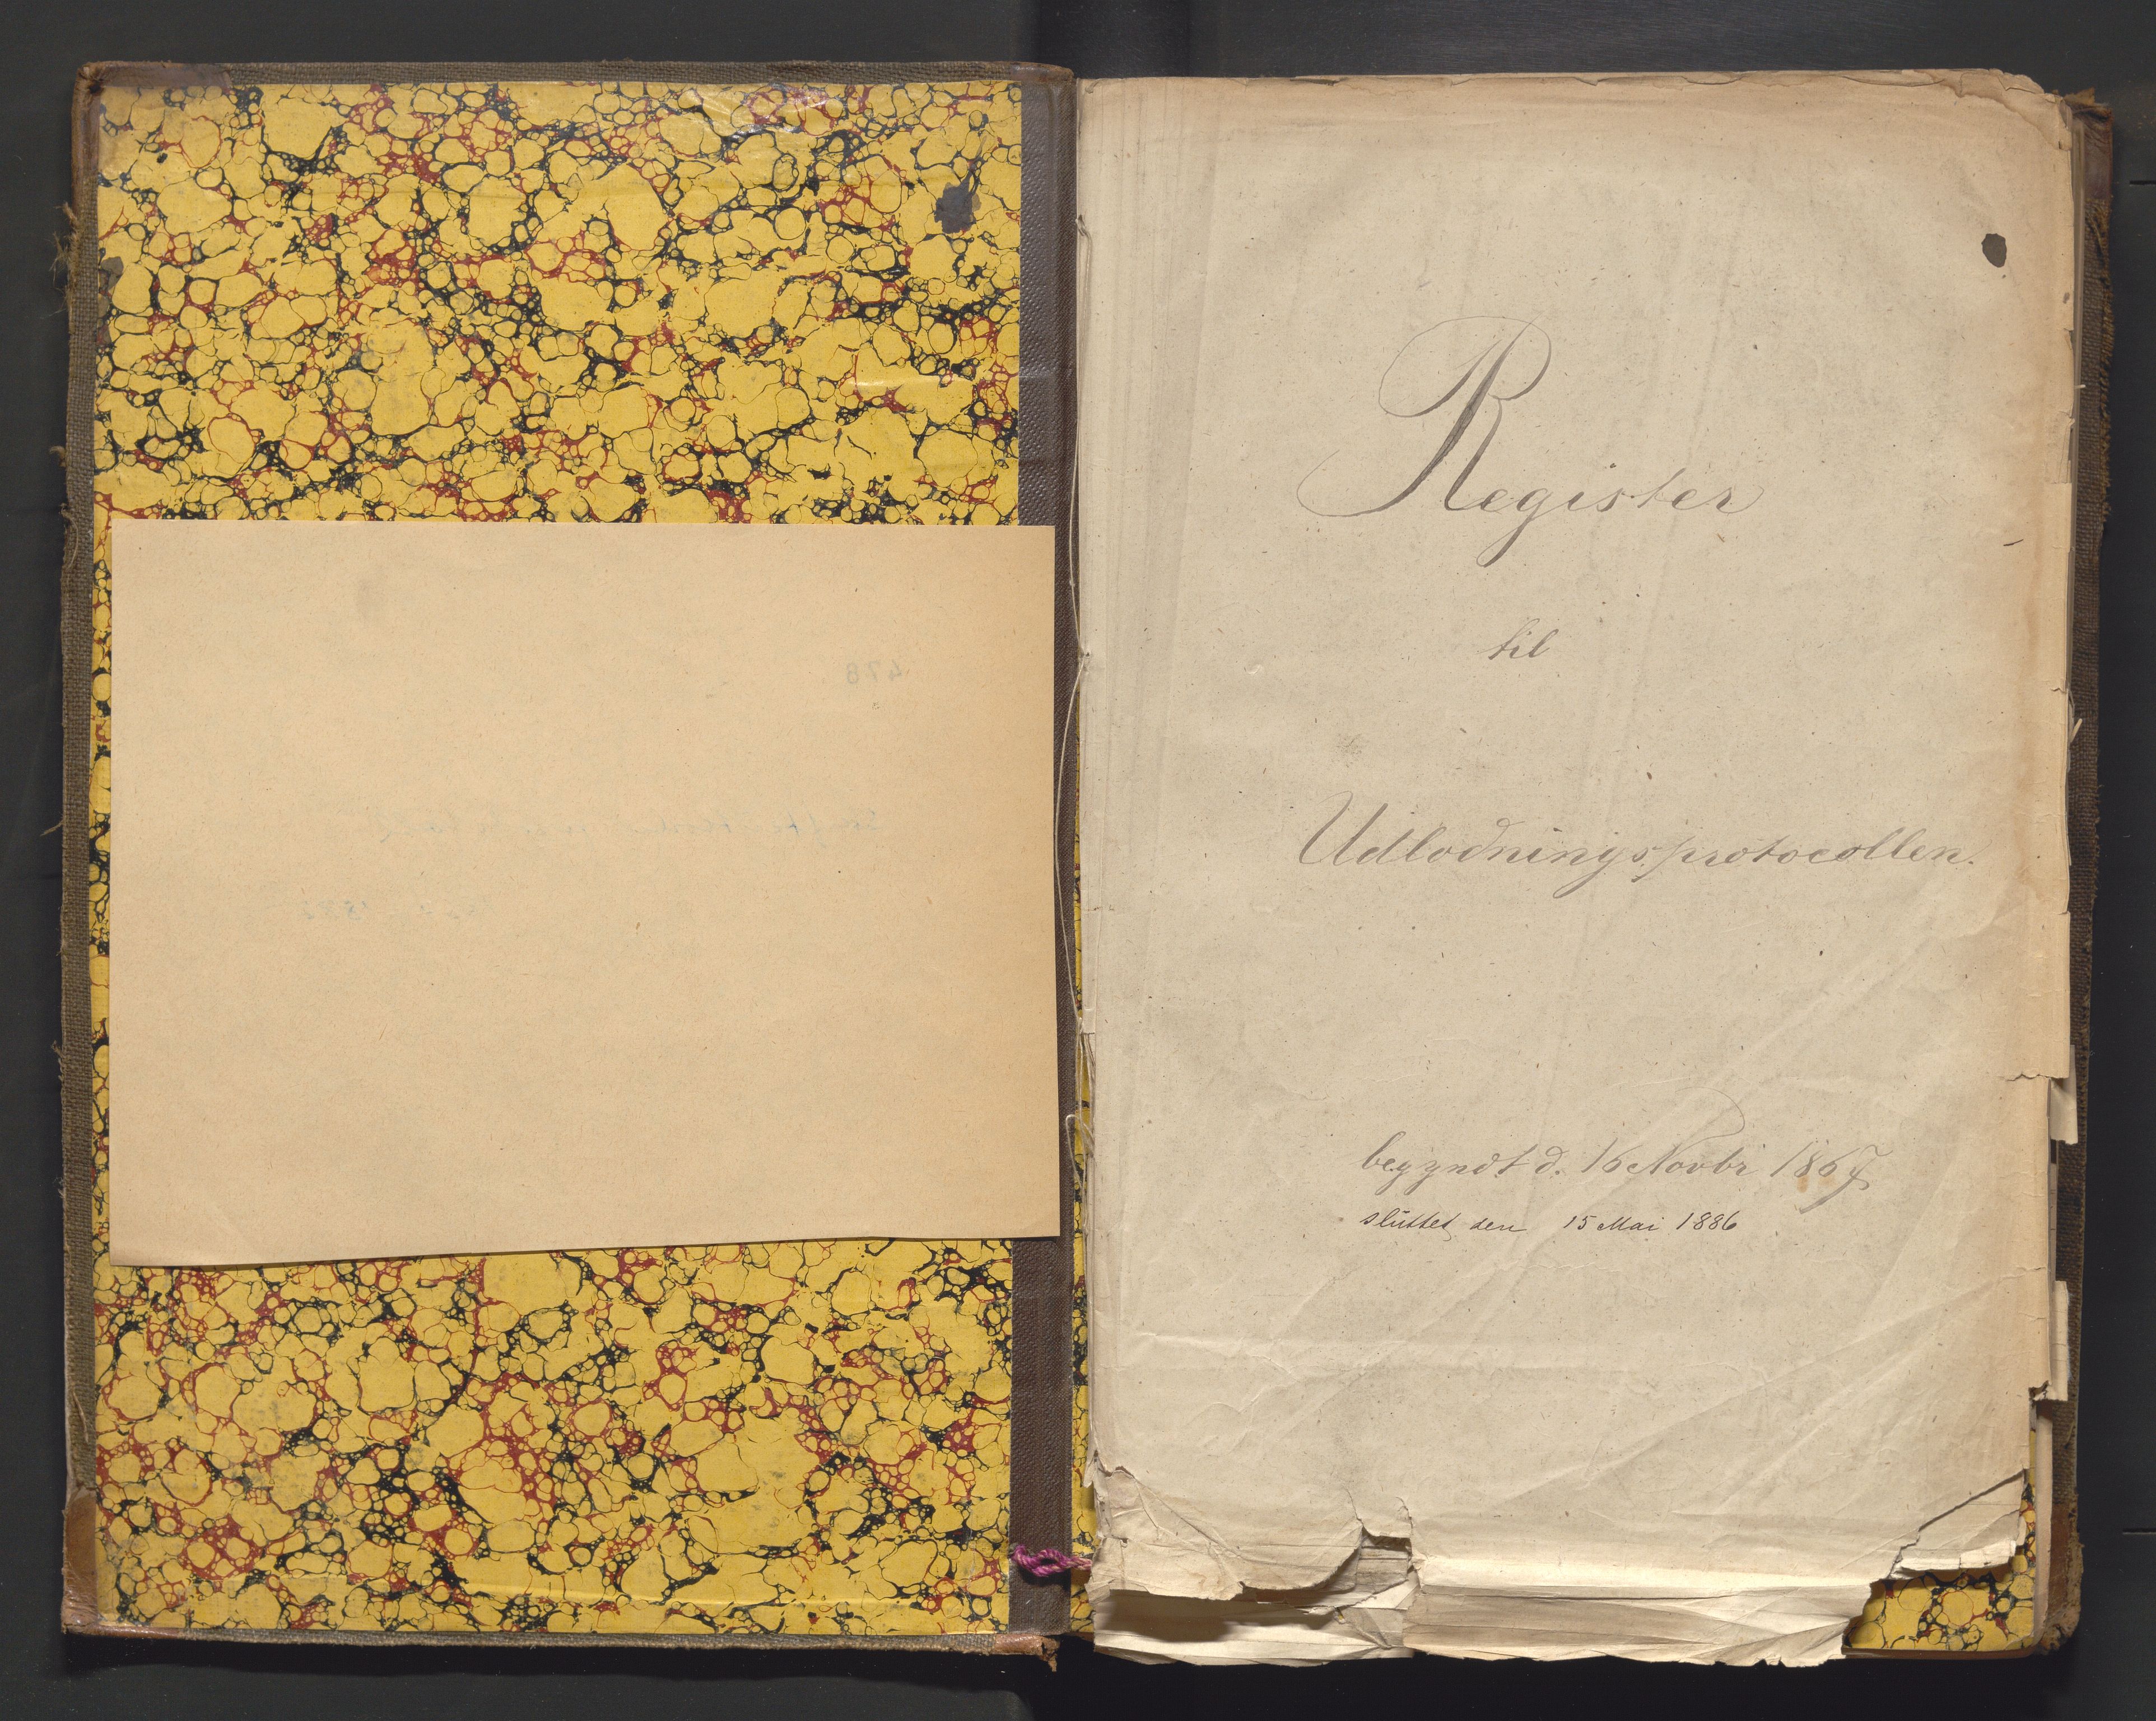 478
Register
til
Udlodningsprotocollen.
begyndt d. 16 Novbr 1867
sluttet den 15 Mai 1886